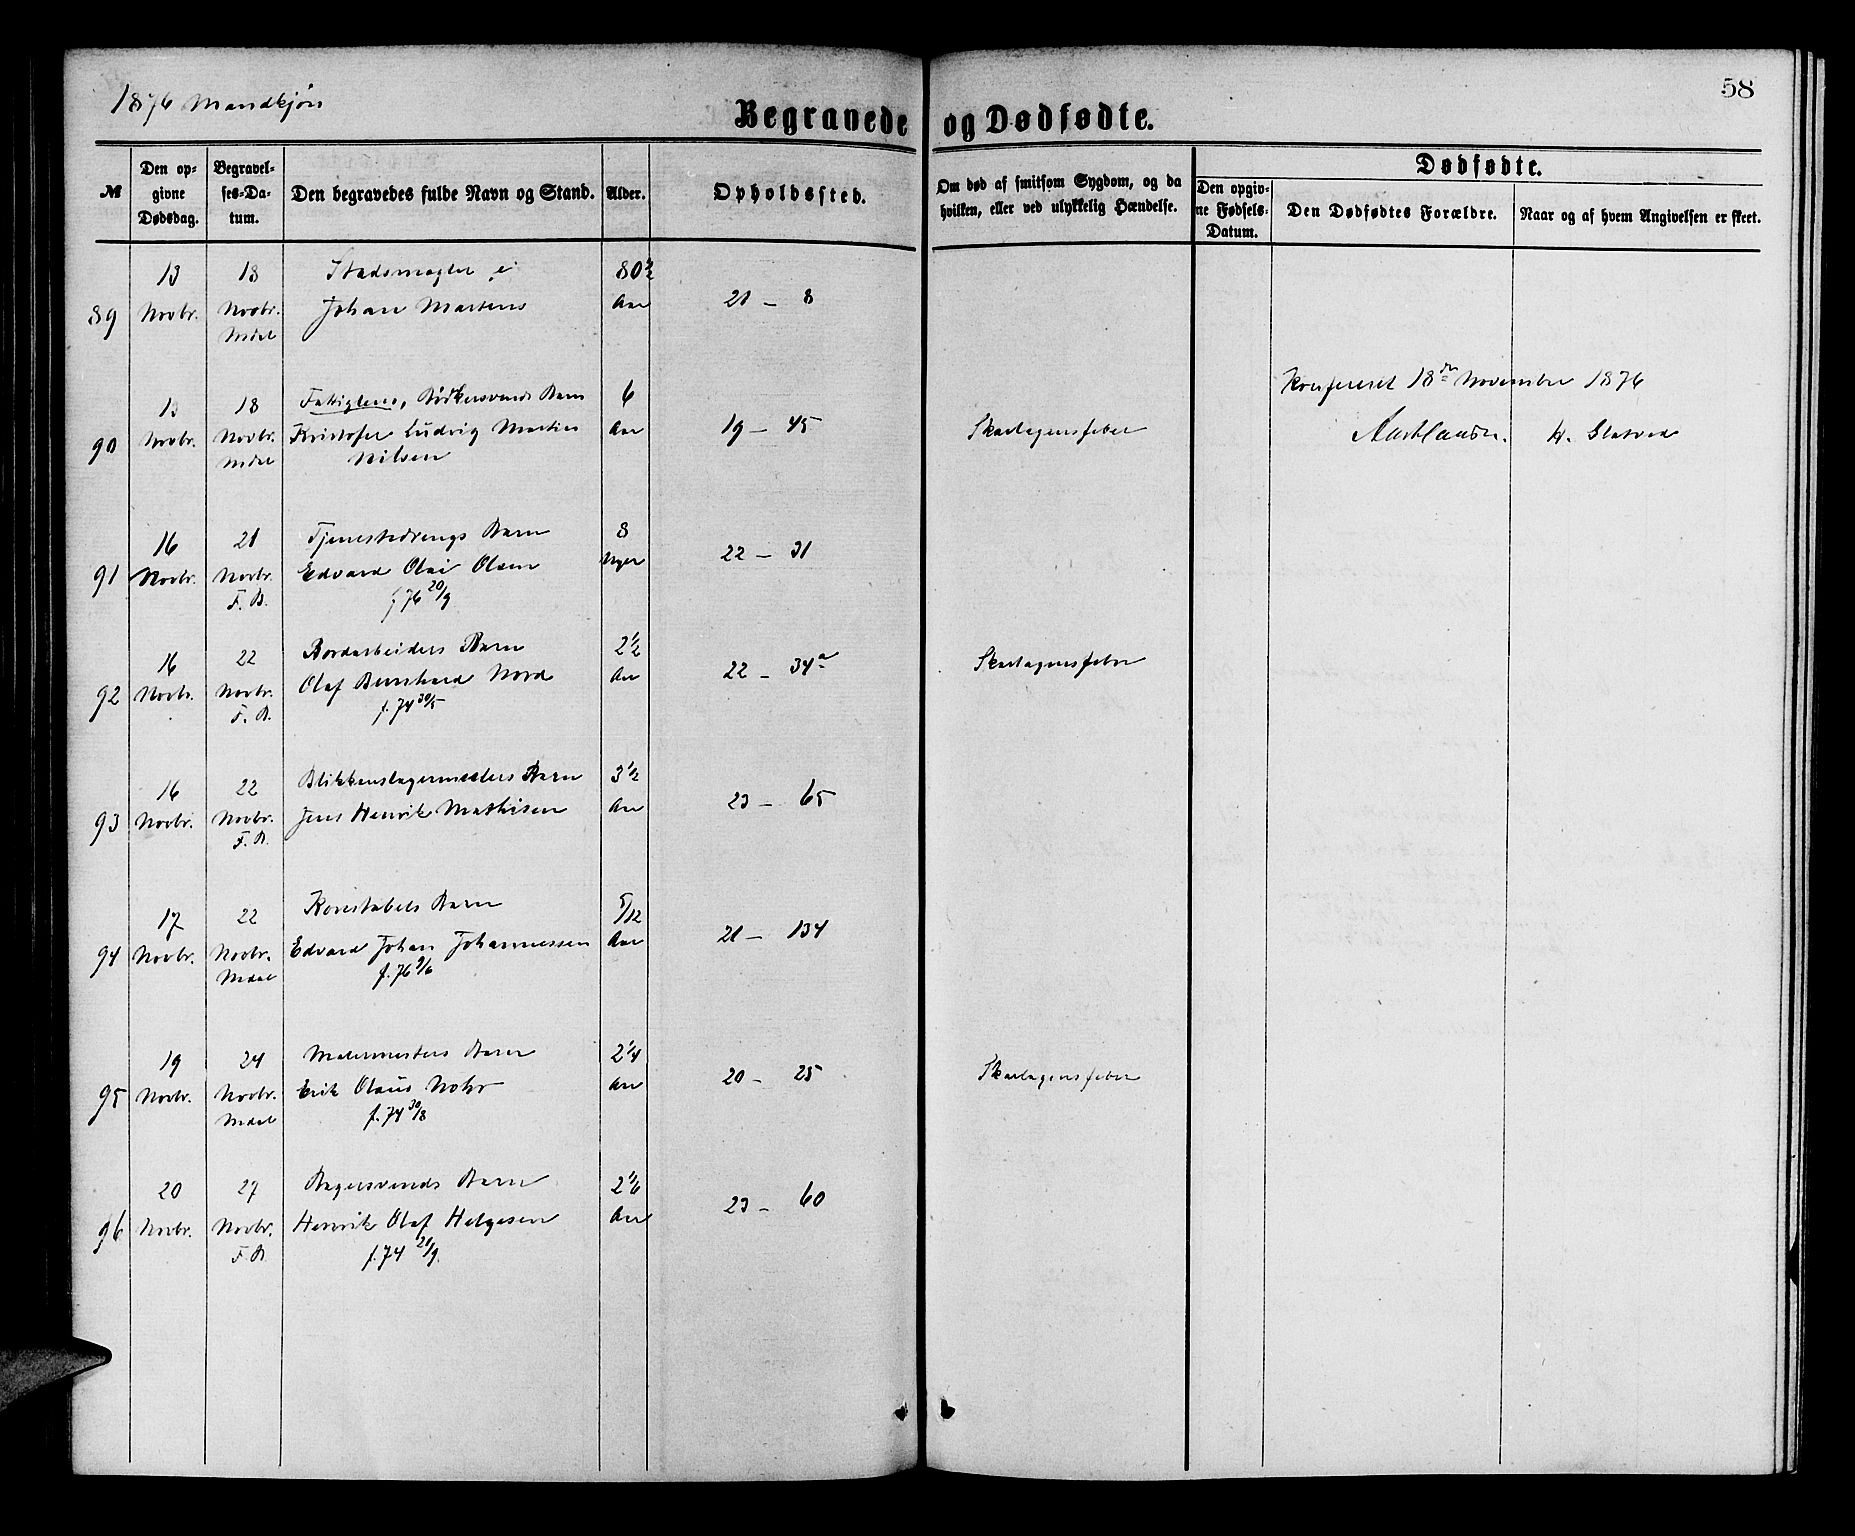 1876 Mandkjøn
58
Begravede og Dødfødte.
№
Den opgivne Dødsdag.
Begravelses-Datum.
Den begravedes fulde Navn og Stand.
Alder.
Opholdssted.
Om død af smitsom Sygdom, og da hvilken, eller ved ulykkelig Hændelse.
Dødfødte.
Den opgivne Fødsels-Datum.
Den Dødfødtes Forældre.
Naar og af hvem Angivelsen er skeet.
13 18 Stadsmægler 80 1/2
89 Novbr. Novbr. Johan Martens Aar 21 - 8
Mdal
Konfereret 18de November 1876
13 18 Fattiglem, Bødkersvends Barn 6
90 Novbr. Novbr. Kristofer Ludvig Martin Aar 19 - 45 Skarlagensfeber
Mdal Nilsen
16 21 Tjenestedrengs Barn 8
91 Novbr. Novbr. Edvard Olai Olsen Uger 22 - 31
F. B. f. 76 20/9
16 22 Bordarbeiders Barn 2 1/2
92 Novbr. Novbr. Olaf Bernhard Nord Aar 22 - 34a Skarlagensfeber
F. B. f. 74 30/5
16 22 Blikkenslagermesters Barn 3 1/2
93 Novbr. Novbr. Jens Henrik Mathisen Aar 23 - 65
F. B.
17 22 Konstabels Barn 5/12
94 Novbr. Novbr. Edvard Johan Johannessen Aar 21 - 134
Mdal f. 76 9/6
19 24 Malermesters Barn 2 1/4
95 Novbr. Novbr. Erik Olaus Mohr Aar 20 - 25 Skarlagensfeber
Mdal f. 74 30/8
20 27 Bagersvends Barn 2 1/6
96 Novbr. Novbr. Henrik Olaf Helgesen Aar 23 - 60
F. B. f. 74 21/9.